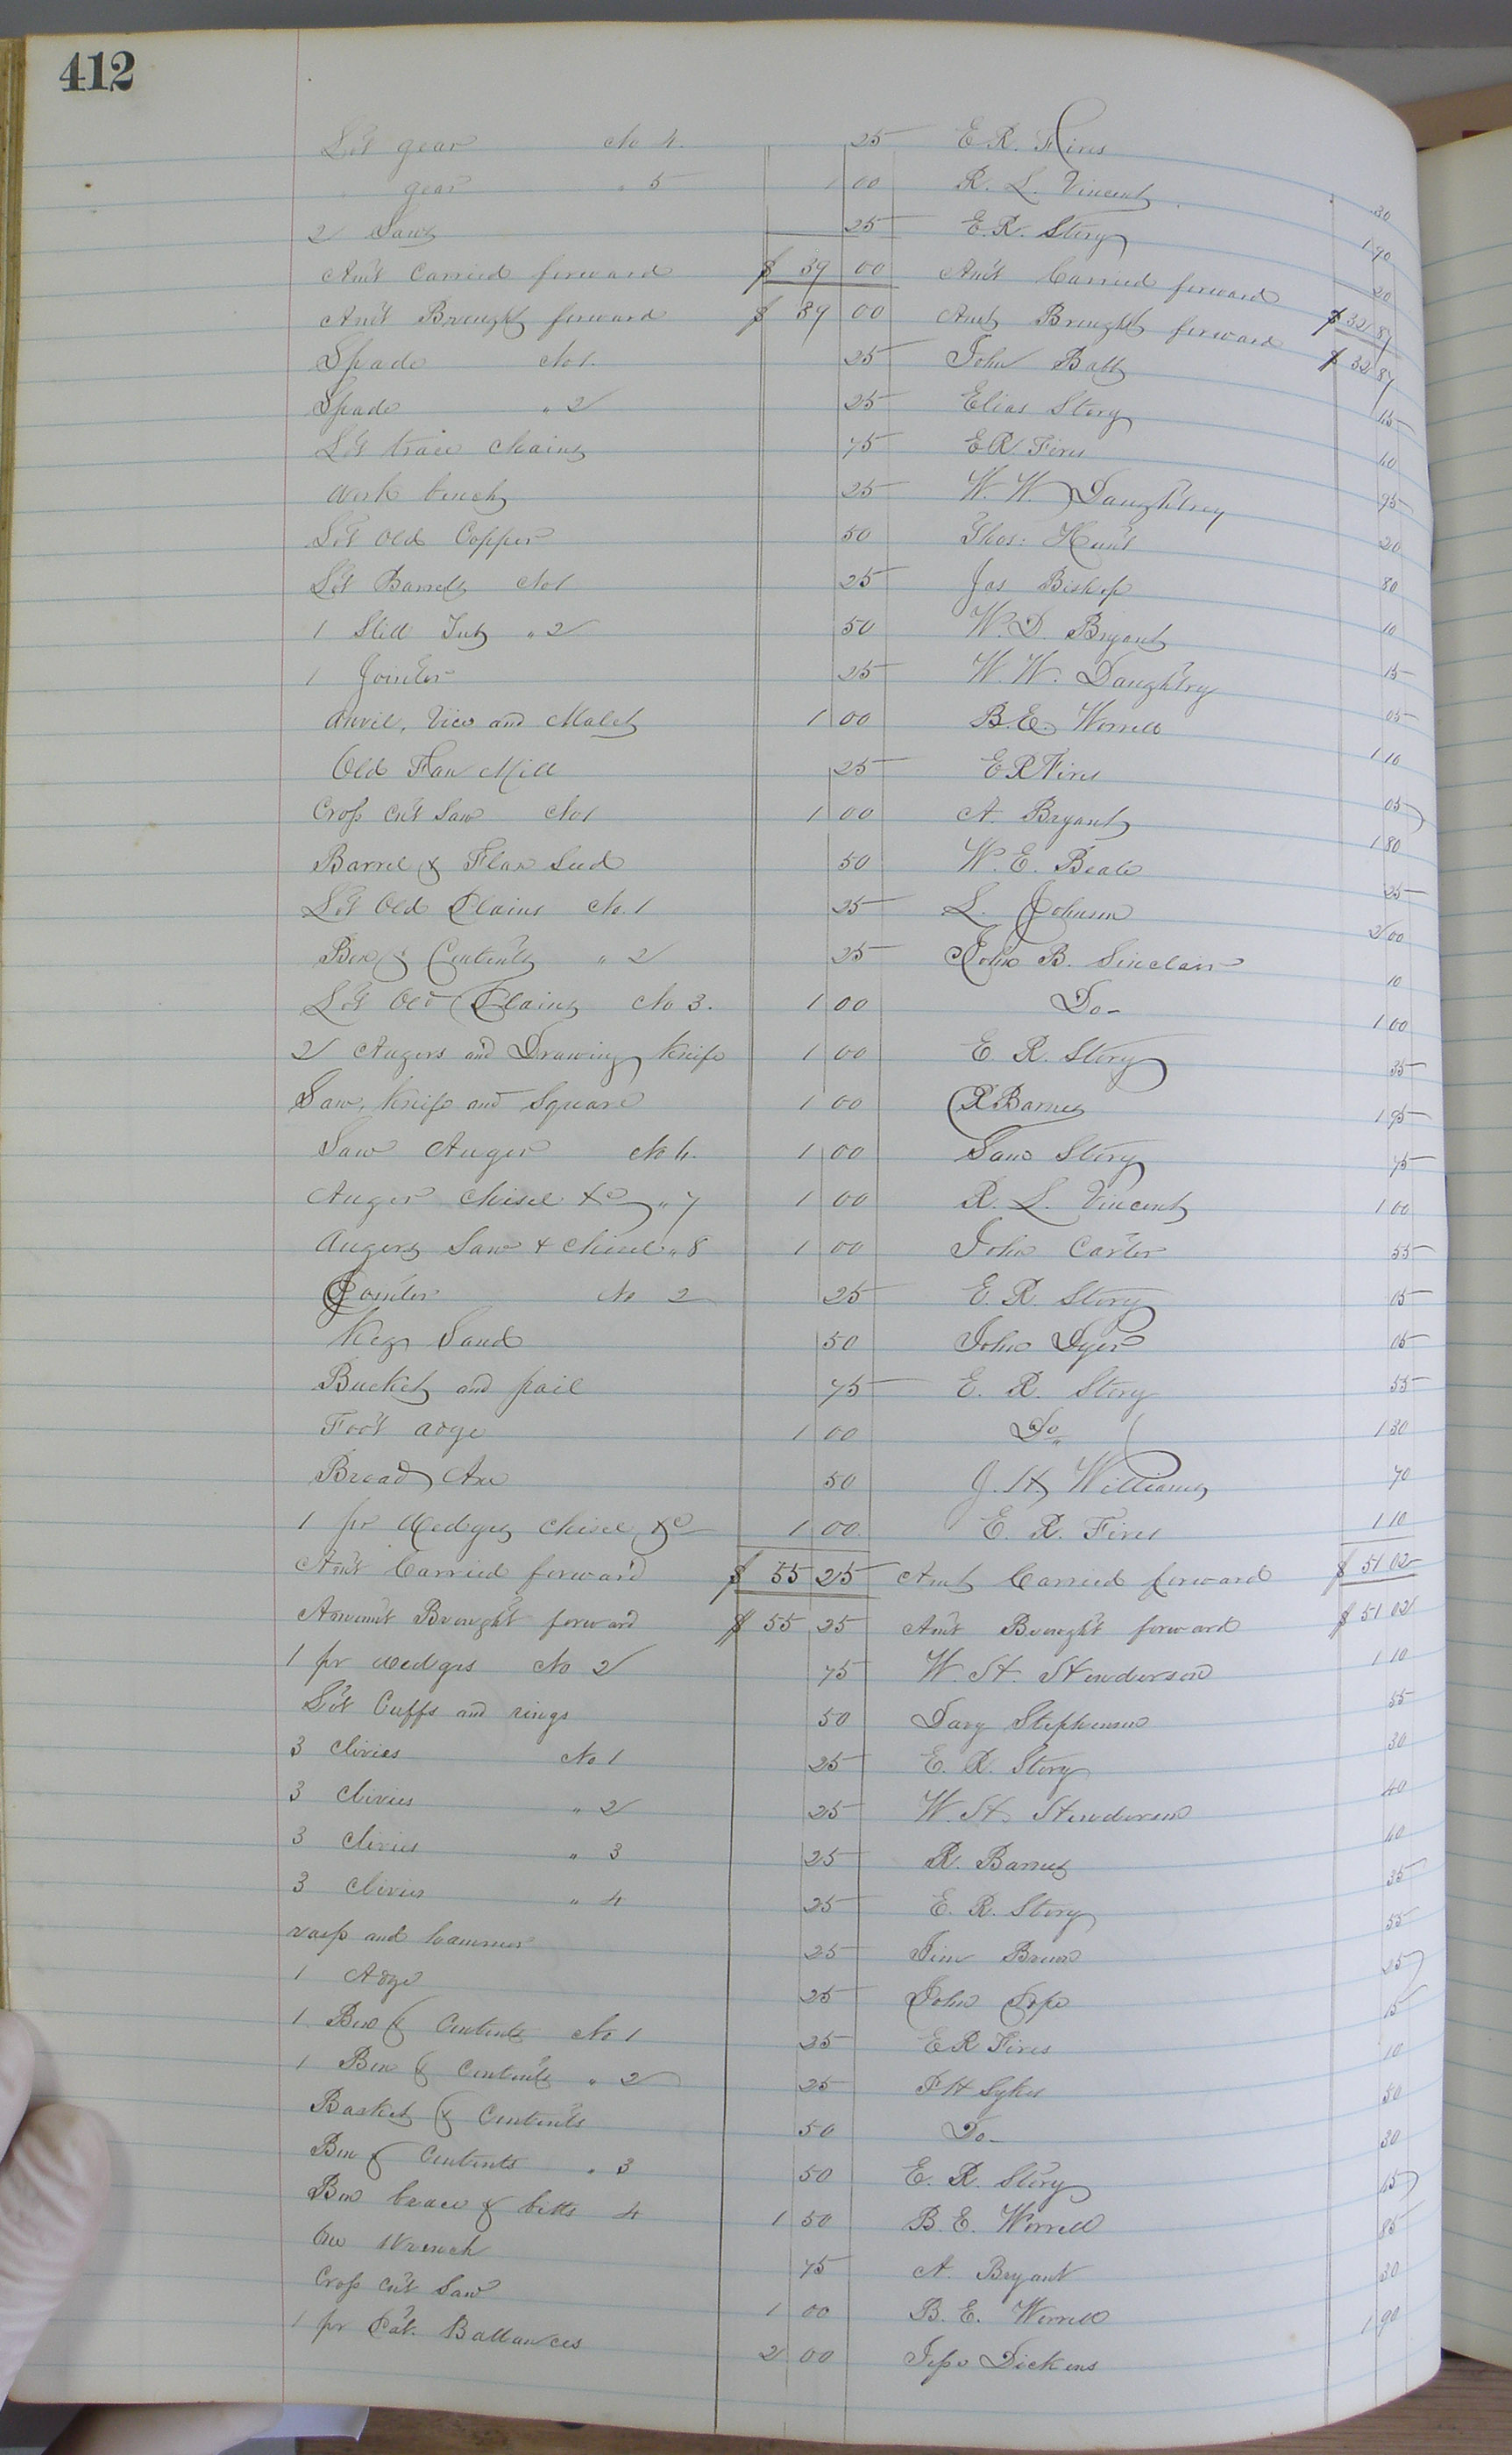 412
Lot gear No 4. 25 E R. Fires 30
gear " 5 1 00 R. L. Vincent 1 90
2 Saws 25 E. R. Story 20
Am't Carried forward $ 39 00 Am't Carried forward $ 32 87
Am't Brought forward $ 39 00 Amt Brought forward $ 32 87
Spade No 1. 25 John Babb 15
Spade " 2 25 Elias Story 60
Lot trace chains 75 E R Fires 95
Work bench 25 W. W Daughtrey 20
Lot Old Copper 50 Thos: Hunt 80
Lot Barrels No 1 25 Jas Bishop 10
1 Still Tub " 2 50 W. D. Bryant 15
1 Jointer 25 W. W. Daughtry 05
Anvil, Vice and Malet 1 00 B. E. Worrell 1 10
Old Fan Mill 25 E R Fires 05
Cross cut Saw No 1 1 00 A. Bryant 1 80
Barrel & Flax Seed 50 W. E. Beale 25
Lot Old Plains No. 1 25 L. Johnson 2 00
Box & Contents " 2 25 John B. Sinclair 10
Lot Old Plains No 3. 1 00 Do- 1 00
2 Augers and Drawing Knife 1 00 E. R. Story 35
Saw, Knife and Square 1 00 R Barnes 1 95
Saw Auger No 6. 1 00 Sam Story 75
Auger Chisel &c " 7 1 00 R. L. Vincent 1 00
Augers Saw & Chisel " 8 1 00 John Carter 55
Jointer No 2 25 E. R. Story 15
Keg Sand 50 John Dyer 05
Bucket and pail 75 E. R. Story 55
Foot adge 1 00 Do 1 30
Broad Axe 50 J. H. Williams 70
1 pr Wedges Chisel &c 1 00 E. R. Fires 1 10
Am't Carried forward $ 55 25 Amt Carried forward $ 51 02
Amount Brought forward $ 55 25 Am't Brought forward $ 51 02
1 pr wedges No 2 75 W. H. Henderson 1 10
Lot Cuffs and rings 50 Davy Stephenson 55
3 Clivies No 1 25 E. R. Story 30
3 Clivies " 2 25 W. H. Henderson 40
3 Clivies " 3 25 R. Barnes 40
3 Clivies " 4 25 E. R. Story 35
rasp and hammer 25 Jim Brown 55
1 Adge 25 John Pope 25
1 Box & Contents No 1 25 E R Fires 15
1 Box & Contents " 2 25 P H Sykes 10
Basket & Contents 50 Do- 50
Box & Contents " 3 50 E. R. Story 30
Box brace & bitts 4 1 50 B. E. Worrell 15
One Wrench 75 A. Bryant 85
Cross cut Saw 1 00 B. E. Worrell 30
1 pr Pat. Ballances 2 00 Jesse Dickens 1 90